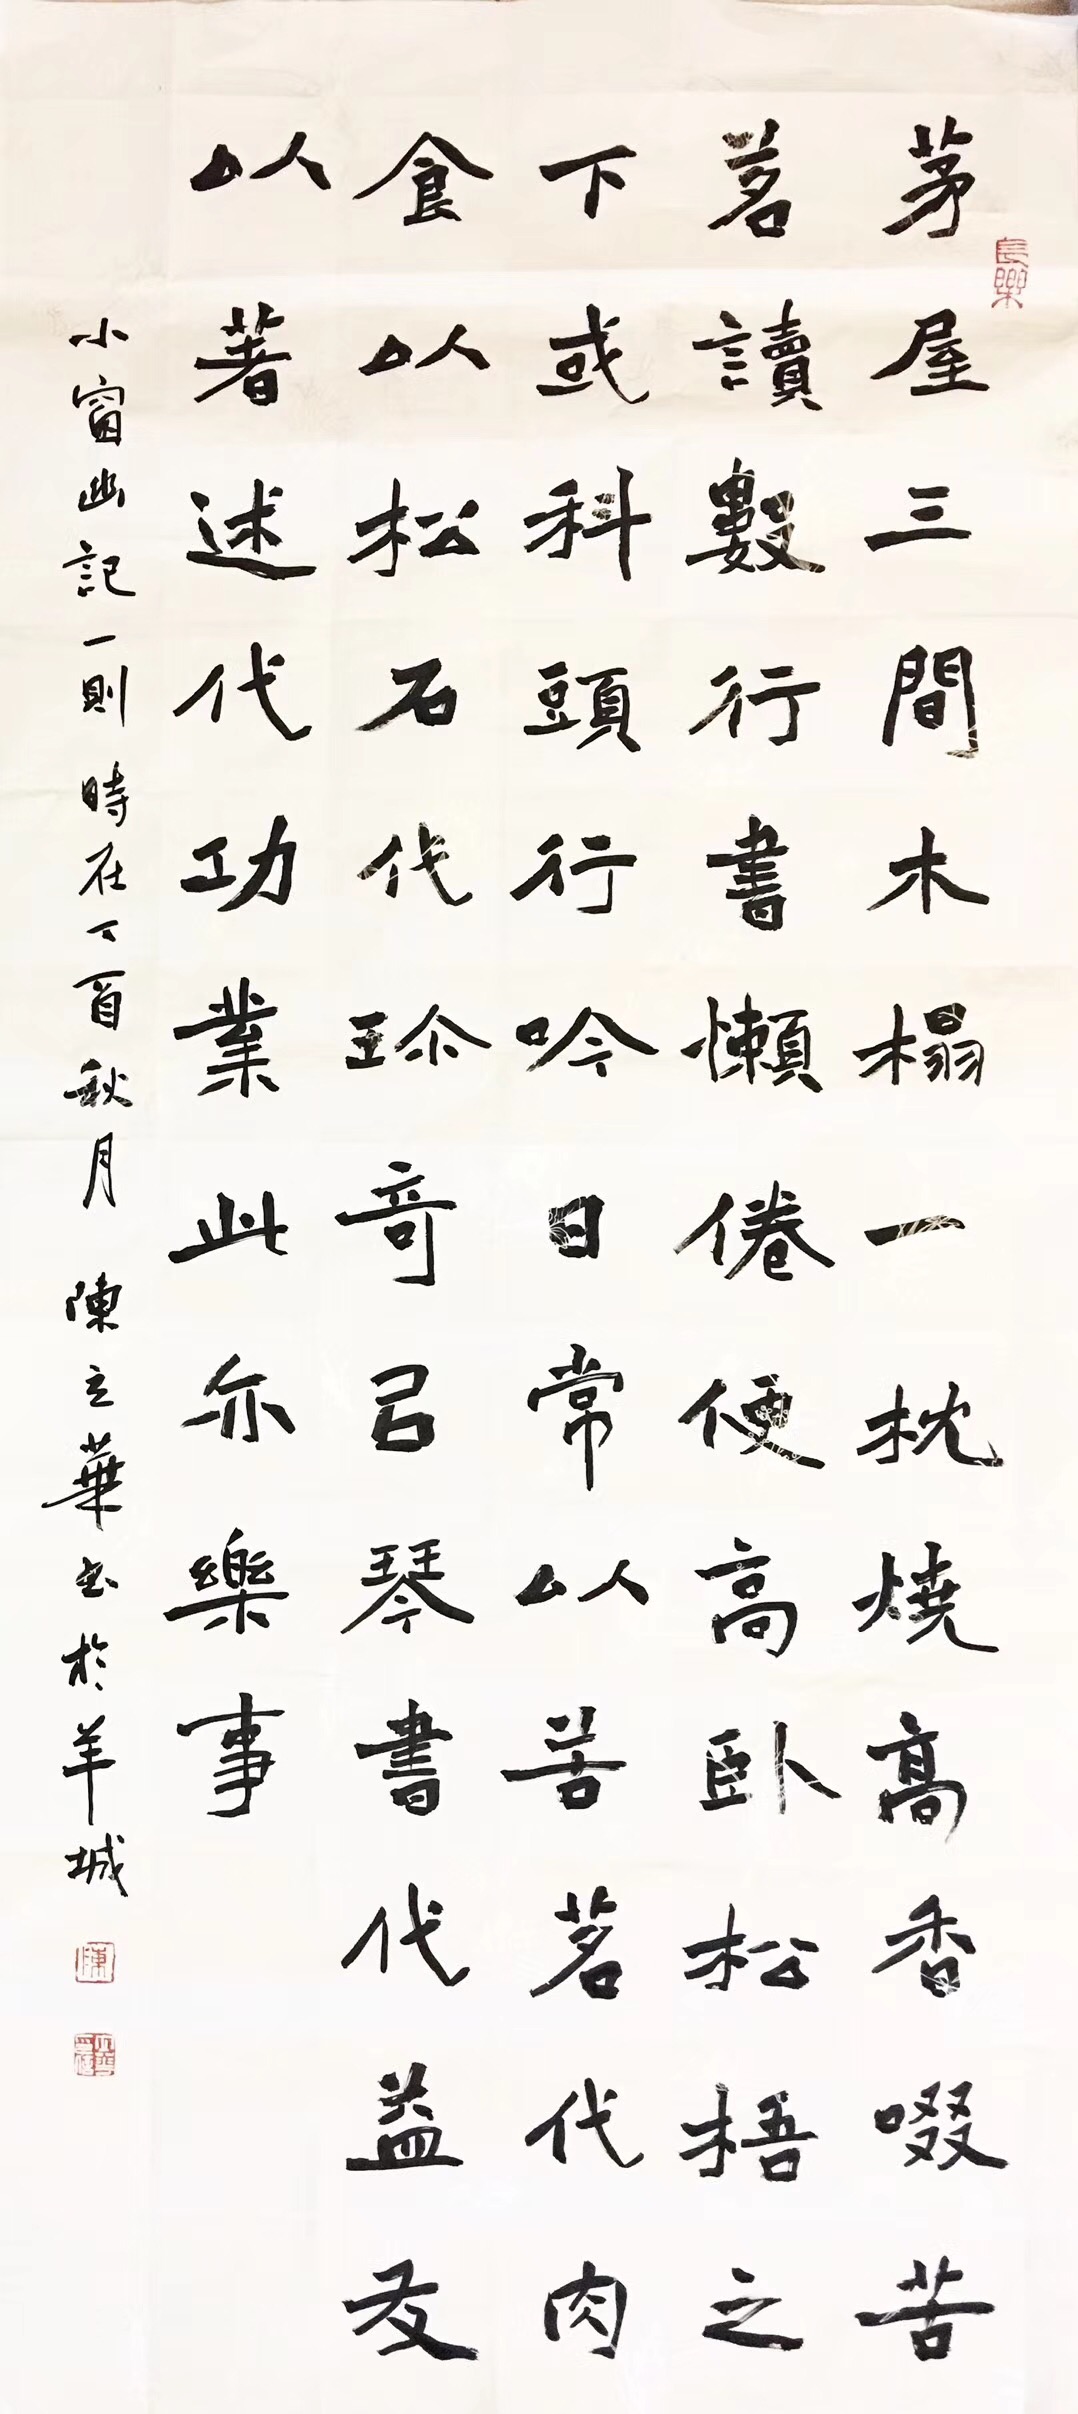 茅屋三間木榻一枕燒高香啜苦
茗讀數行書懶倦便高卧松梧之
下或科頭行吟日常以苦茗代肉
食以松石代珎奇以琴書代益友
以著述代功業此亦樂事
小窗幽記一則時在丁酉秋月陳立華书於羊城
長樂
陳